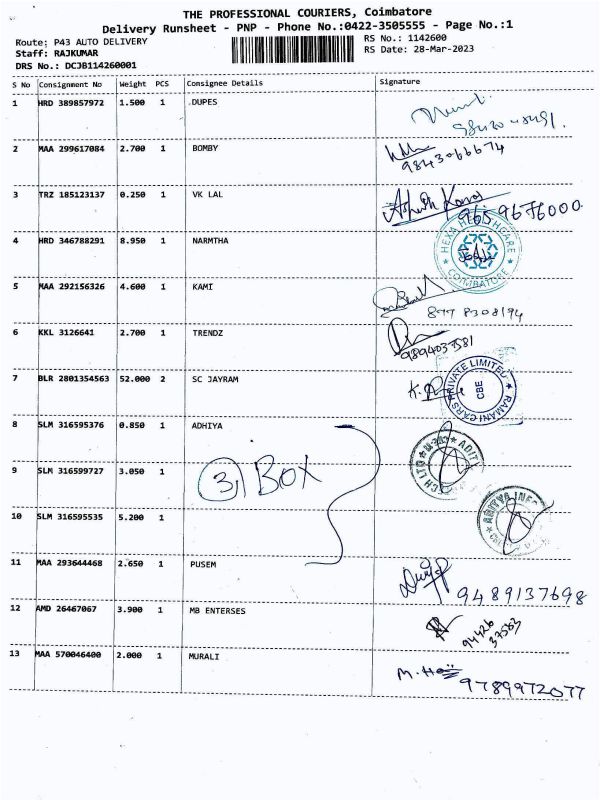 THE PROFESSIONAL COURIERS, Coimbatore
Delivery Runsheet - PNP - Phone No.:0422-3505555 - Page No.:1
Route: P43 AUTO DELIVERY
RS No.: 1142600
Staff: RAJKUMAR
RS Date: 28-Mar-2023
DRS No.: DCJB114260001
S No Consignment No Weight PCS Consignee Details Signature
1 HRD 389857972 1.500 1 .DUPES
2 MAA 299617084 2.700 1 BOMBY
9843066674
3 TRZ 185123137 0.250 1 VK LAL
9659676000
4 HRD 346788291 8.950 1 NARMTHA
HEXA HEALTHCARE
COIMBATORE
5 MAA 292156326 4.600 1 KAMI
8778308194
6 KKL 3126641 2.700 1 TRENDZ
9894037581
7 BLR 2801354563 52.000 2 SC JAYRAM
RAMANI CARS PRIVATE LIMITED
CBE
8 SLM 316595376 0.850 1 ADHIYA
9 SLM 316599727 3.050 1
3 BOX
10 SLM 316595535 5.200 1
11 MAA 293644468 2.650 1 PUSEM
9489137698
12 AMD 26467067 3.900 1 MB ENTERSES
94426
37583
13 MAA 570046400 2.000 1 MURALI
9789972077